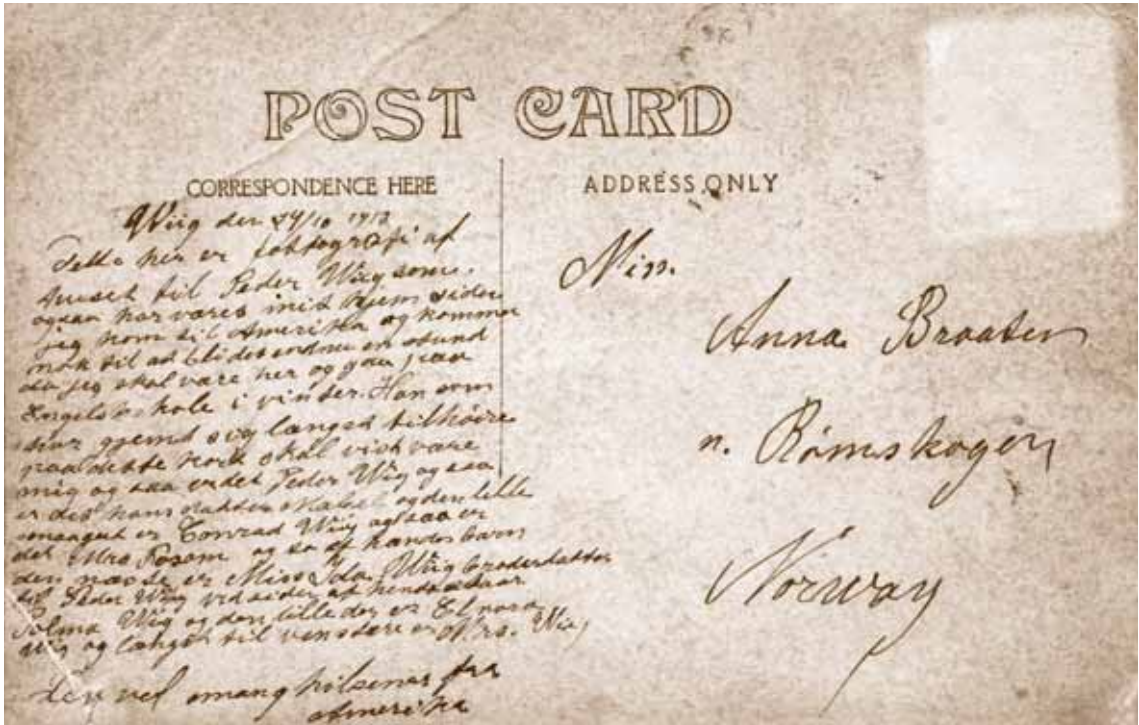 POST CARD
CORRESPONDENCE HERE
ADDRESS ONLY
Wiig den 24/10 1913
Dette her er fottografi af
huset til Peder Wiig som
ogsaa har vares mit hjem siden
jeg kom til Amerika og kommer
nok til at bli det endnu en stund
da jeg skal vare her og gaa paa
Engelsk skole i vinter. Han som
staar gjemd sig længst tilhøire
paa dette kort skal vist vare
mig og saa er det Peder Wiig og saa
er det hans datter Mabel og den lille
smaagut er Conrad Wiig og saa er
det Mrs Fosom og so af hændes barn
den næste er Miss Ida Wiig broderdatter
til Peder Wiig ved siden af hende staar
Selma Wiig og den lille der er Elnora
Wiig og længst til venstere er Mrs. Wiig
Lev vel mang hilsener fra
Amerika
Miss.
Anna Braaten
n. Rømskogen
Norway